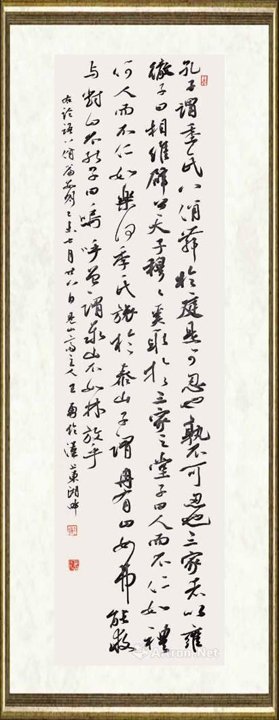 孔子謂季氏八佾舞於庭是可忍也孰不可忍也三家者以雍
徹子曰相維辟公天子穆穆奚取於三家之堂子曰人而不仁如禮
何人而不仁如樂何季氏旅於泰山子謂冉有曰女弗能救
与對曰不能子曰嗚呼曾謂泰山不如林放乎
右論語八佾篇 未七月廿八日 山 主人王 於漢上東湖畔